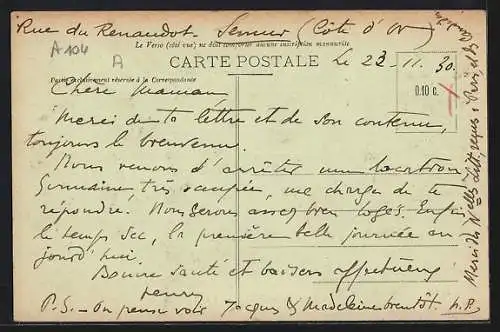 Rue du Renaudot. Semur (Côte d'Or)
A 104
A
Le Verso (côté vue) ne doit comporter aucune inscription manuscrite
CARTE POSTALE
Le 23 11. 30.
Partie exclusivement réservée à la Correspondance
0.10 c.
Chère Maman,
Merci de ta lettre et de son contenu,
toujours le bienvenu.
Nous venons d'arrêter une location
Germaine, très occupée, me charge de te
répondre. Nous serons assez bien logés. Enfin
le temps sec, la première belle journée au-
jourd'hui
Bonne santé et baisers affectueux
Henry
P.S. - On pense voir Jacques & Madeleine bientôt. H.P.
Merci des Nelles